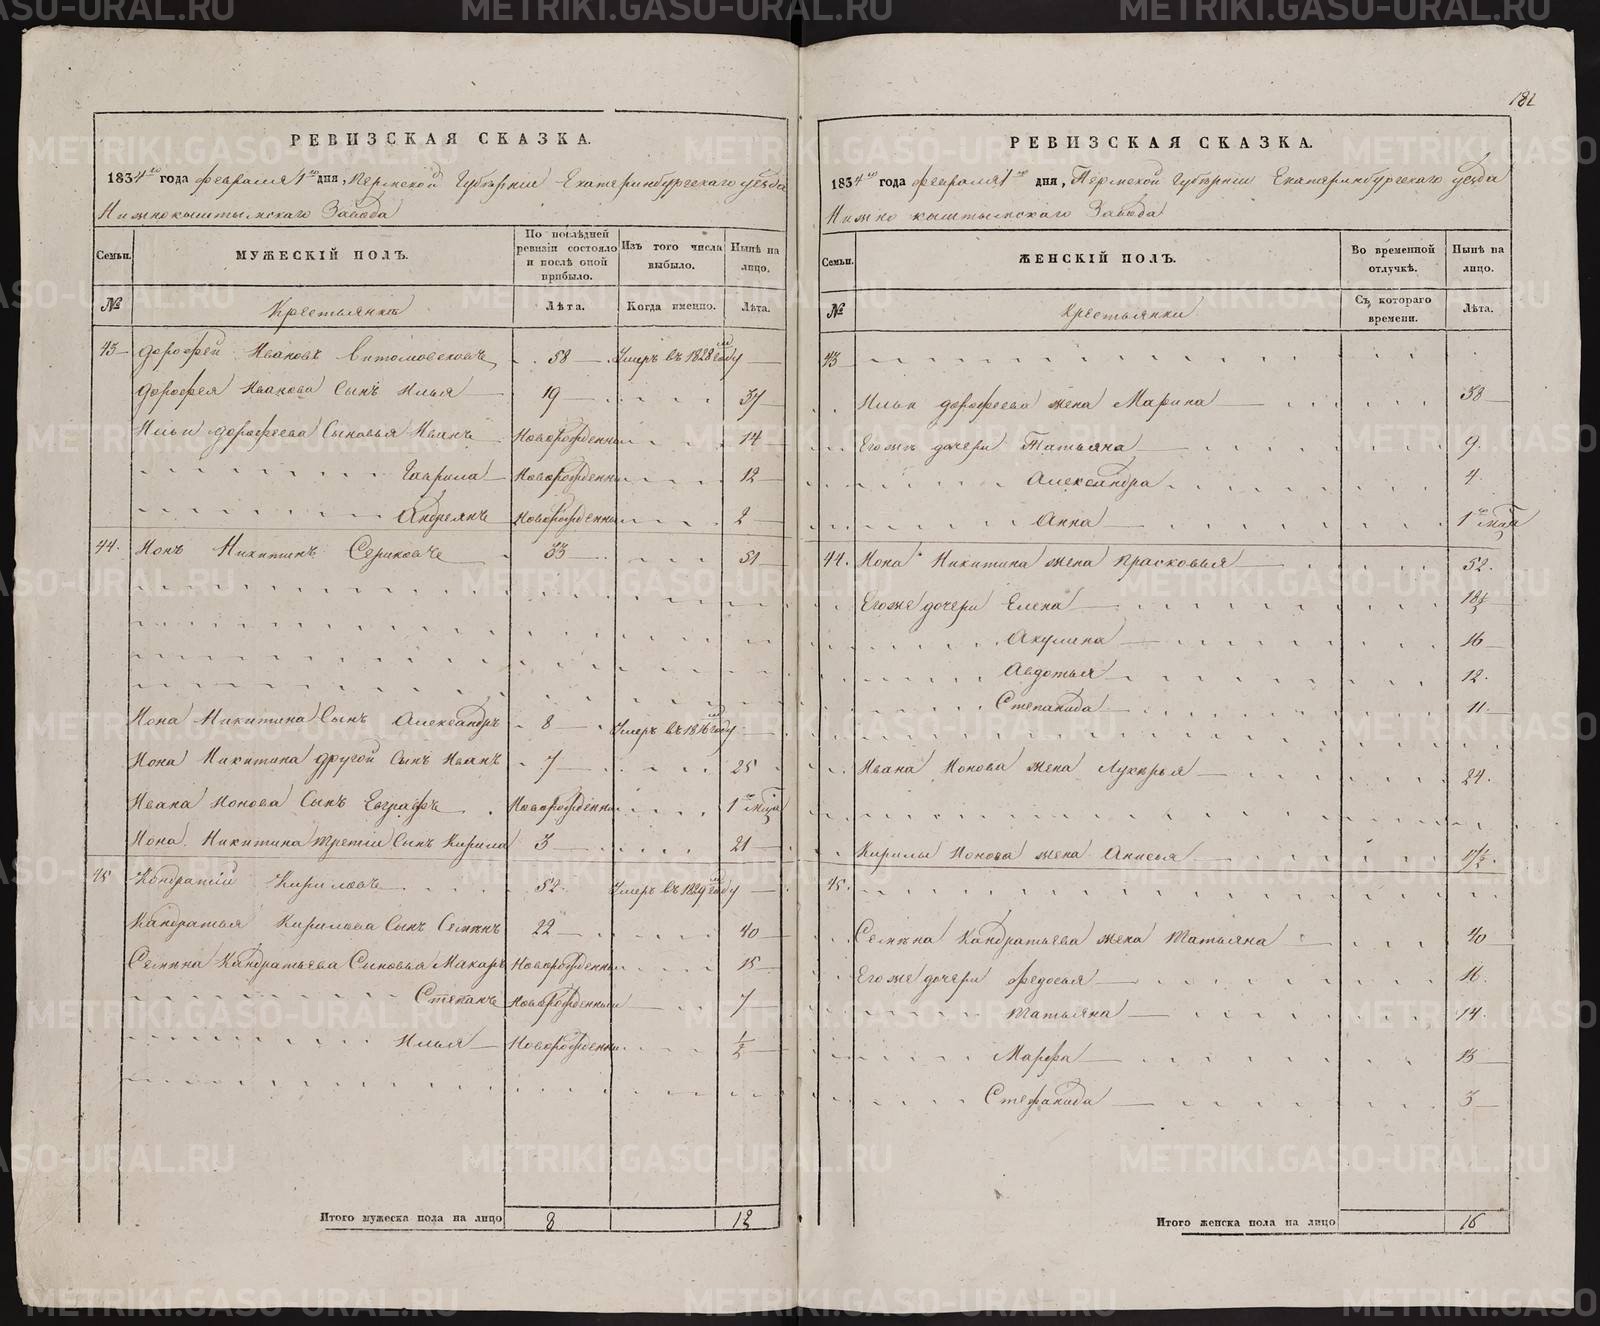 182
РЕВИЗСКАЯ СКАЗКА.
1834го года февраля 1го дня, Пермской Губернiи Екатеринбургскаго уезда
Нижнокыштымскаго Завода
Семьи. МУЖЕСКIЙ ПОЛЪ. По послѣдней ревизiи состояло и послѣ оной прибыло. Изъ того числа выбыло. Нынѣ на лицо.
№ Крестьянинъ Лѣта. Когда именно. Лѣта.
43 Дорофей Ивановъ 58 Умеръ въ 1828 году
Дорофея Иванова Сынъ Илья 19 37
Ильи Дорофеева Сыновья Иванъ Новорожденны 14
Гаврила Новорожденны 12
Андреянъ Новорожденны 2
44. Iонъ Никитинъ Сериковъ 33 51
Iона Никитина Сынъ Александръ 8 Умеръ въ 1816 году
Iона Никитина другой Сынъ Иванъ 7 25
Ивана Iонова Сынъ Евграфъ Новорожденны 1го мѣца
Iона Никитина третiй Сынъ Кирила 3 21
45 Кондратiй Кириловъ 52 Умеръ въ 1829 году
Кандратья Кирилова Сынъ Семенъ 22 40
Семена Кандратьева Сыновья Макаръ Новорожденны 15
Степанъ Новорожденныи 7
Илья Новорожденны 1/2
Итого мужеска пола на лицо 8 12
РЕВИЗСКАЯ СКАЗКА.
1834го года февраля 1го дня, Пермской Губернiи Екатеринбургскаго уезда
Нижно кыштымскаго Завода
Семьи. ЖЕНСКIЙ ПОЛЪ. Во временной отлучкѣ. Нынѣ на лицо.
№ Крестьянки Съ котораго времени. Лѣта.
43
Ильи Дорофеева жена Марина 38
Егожъ дочери Татьяна 9.
Александра 4
Анна 1го мѣца
44. Iона Никитина жена Прасковья 52.
Егоже дочери Елена 18½
Акулина 16
Авдотья 12.
Степанида 11.
Ивана Iонова жена Лукерья 24.
Кирилы Iонова жена Анисья 17½.
45.
Семена Кандратьева жена Татьяна 40
Егоже дочери Федосья 16.
Татьяна 14.
Марфа 13
Стефанида 3
Итого женска пола на лицо 16
METRIKI.GASO-URAL.RU